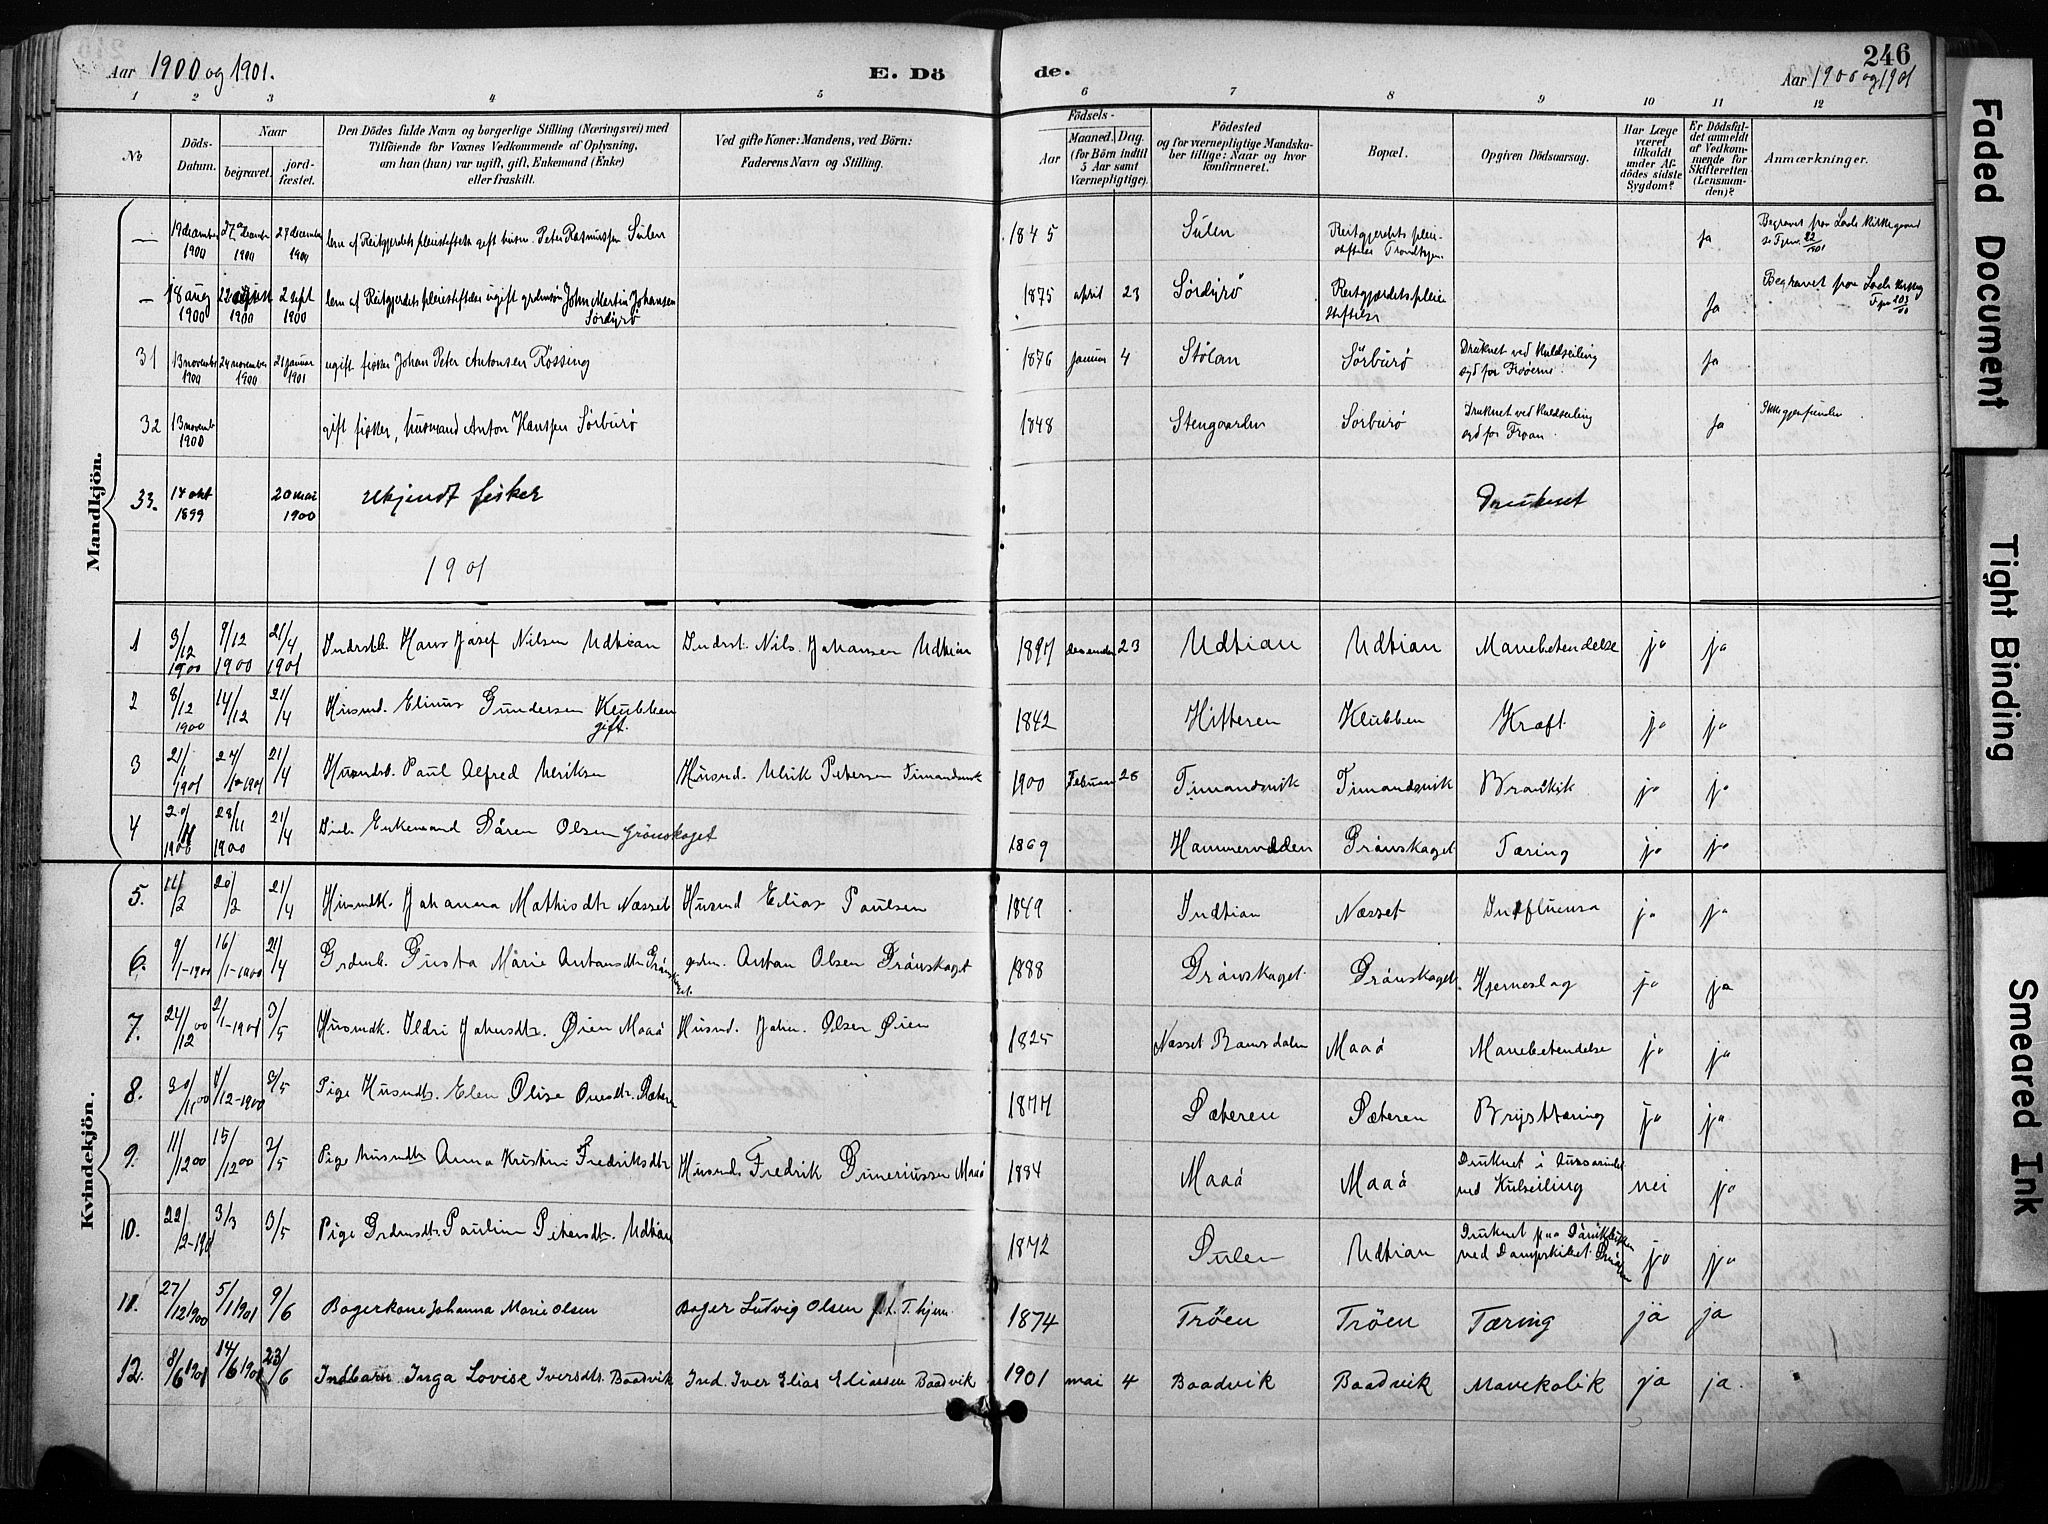 Aar 1900 og 1901.
E. Dö
de.
246
Aar 1900 og 1901
1 2 3 4 5 6 7 8 9 10 11 12
No
Döds-Datum.
Naar
begravet.
jord-fæstet.
Den Dödes fulde Navn og borgerlige Stilling (Næringsvei) med
Tilföiende for Voxnes Vedkommende af Oplysning,
om han (hun) var ugift, gift, Enkemand (Enke)
eller fraskilt.
Ved gifte Koner: Mandens, ved Börn:
Faderens Navn og Stilling.
Födsels-
Aar
Maaned.
Dag.
(for Börn indtil
5 Aar samt
Værnepligtige).
Födested
og for værnepligtige Mandska-
ber tillige: Naar og hvor
konfirmeret.
Bopæl.
Opgiven Dödsaarsag.
Har Læge
været
tilkaldt
under Af-
dödes sidste
Sygdom?
Er Dödsfal-
det anmeldt
af Vedkom-
mende for
Skifteretten
(Lensman-
den)?
Anmærkninger.
Mandkjön.
— 19 december 1900 27 december 1900 29 december 1900 lem af Reitgjerdets pleiestiftelse gift husm. Peter Rasmussen Sulen 1845 Sulen Reitgjerdets pleie-stiftelse Trondhjem Ja Begravet paa Lade Kirkegaard
— 18 aug 1900 22 august 1900 2 sept 1900 lem af Reitgjerdets pleiestiftelse ugift grdmsøn John Martin Johansen Sørdyrø 1875 april 23 Sørdyrø Reitgjærdets pleiestiftelse Ja Begravet paa Lade
31 13 november 1900 24 november 1900 21 januar 1901 ugift fisker Johan Peter Antonsen Røssing 1876 januar 4 Stølan Sörburø Druknet ved Kuldseiling syd for Froøerne. Ja
32 13 november 1900 gift fisker, husmand Anton Hanssen Sörburö 1848 Stengaarden Sorburö Druknet ved Kuldseiling syd for Froan. Ja Ikke gjenfunden
33. 14 okt 1899 20 mai 1900 Ukjendt fisker Druknet
1901
1 3/12 1900 9/12 1900 21/4 1901 Inderstb. Hans Josef Nilsen Udtian Inderst. Nils Johansen Udtian 1897 desember 23 Udtian Udtian Mavebetendelse ja ja
2 8/12 1900 14/12 21/4 Husmd. Elinus Gundersen Klubben gift. 1842 Hitteren Klubben Kræft ja ja
3 21/1 1901 27/1 1901 21/4 Husmdsb. Paul Alfred Ulriksen Husmd. Ulrik Petersen Timandsvik 1900 Februar 26 Timandsvik Timandsvik Bronkit ja ja
4 20/11 1900 28/11 1900 21/4 Enkemand Sören Olsen Grönskaget 1869 Hammervolden Grönskaget Tæring ja ja
Kvindekjön.
5. 14/2 20/2 21/4 Husmdk. Johanna Mathisdtr Næsset Husmd Elias Paulsen 1849 Indtian Næsset Indfluensa ja ja
6. 9/1-1900 16/1-1900 21/4 Grdmb. Gusta Marie Antonsdtr Grönskaget gdm. Anton Olsen Grönskaget 1888 Grönskaget Grönskaget Hjerneslag ja ja
7. 24/12 00 2/1-1901 3/5 Husmdk. Ildri Johnsdtr. Øien Maaö Husmd. John Olsen Øien 1825 Næsset Romsdalen Maaö Mavebetendelse ja ja
8. 30/11 00 7/12-1900 3/5 Pige Husmdtr. Elen Olise Onesdtr. Sæteren 1877 Sæteren Sæteren Brysttæring ja ja
9. 11/12 00 15/12 00 3/5 Pige husmdtr Anna Kristine Fredriksdtr Husmd. Fredrik Guneriussen Maaö 1884 Maaö Maaö Druknet i ved Kulseiling nei ja
10. 22/2-1901 3/3 3/5 Pige Grdmsdtr. Pauline Petersdtr. Udtian 1872 Sulen Udtian Druknet paa ved Dampskibet ja ja
11. 27/12 1900 5/1 1901 9/6 Bagerkone Johanna Marie Olsen Bager Ludvig Olsen T.hjem 1874 Tröen Tröen Tæring ja ja
12. 8/6 1901 14/6 1901 23/6 Indbarn Inga Lovise Iversdtr. Baadvik Ind. Iver Elias Eliassen Baadvik 1901 mai 4 Baadvik Baadvik Mavekolik ja ja.
Faded Document
Tight Binding
Smeared Ink